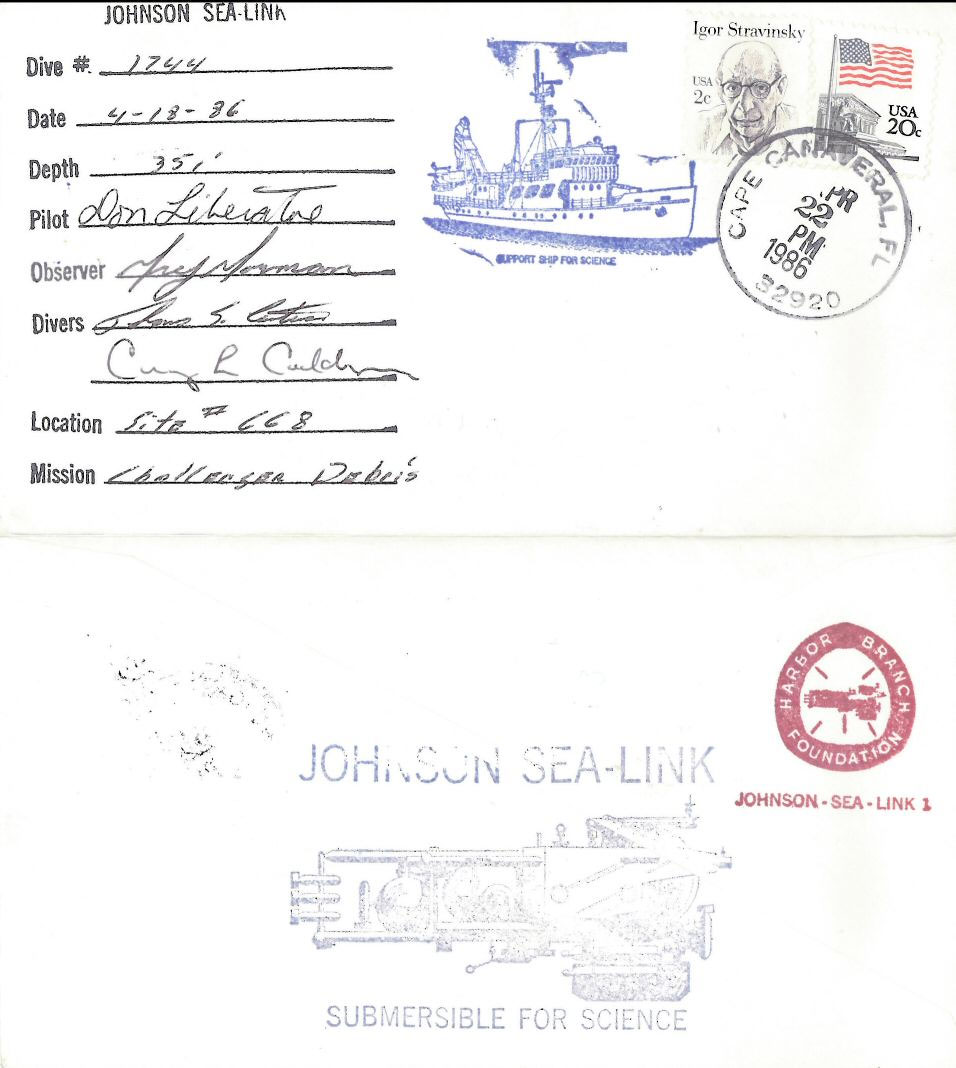 JOHNSON SEA-LINK
Dive # 1744
Date 4-18-86
Depth 351'
Pilot Don Liberatore
Observer
Divers
Craig R Cald
Location Site # 668
Mission Challenger Debris
SUPPORT SHIP FOR SCIENCE
Igor Stravinsky
USA
2c
USA
20c
CAPE CANAVERAL, FL
PR
22
PM
1986
32920
HARBOR BRANCH
FOUNDATION
JOHNSON-SEA-LINK 1
JOHNSON SEA-LINK
SUBMERSIBLE FOR SCIENCE